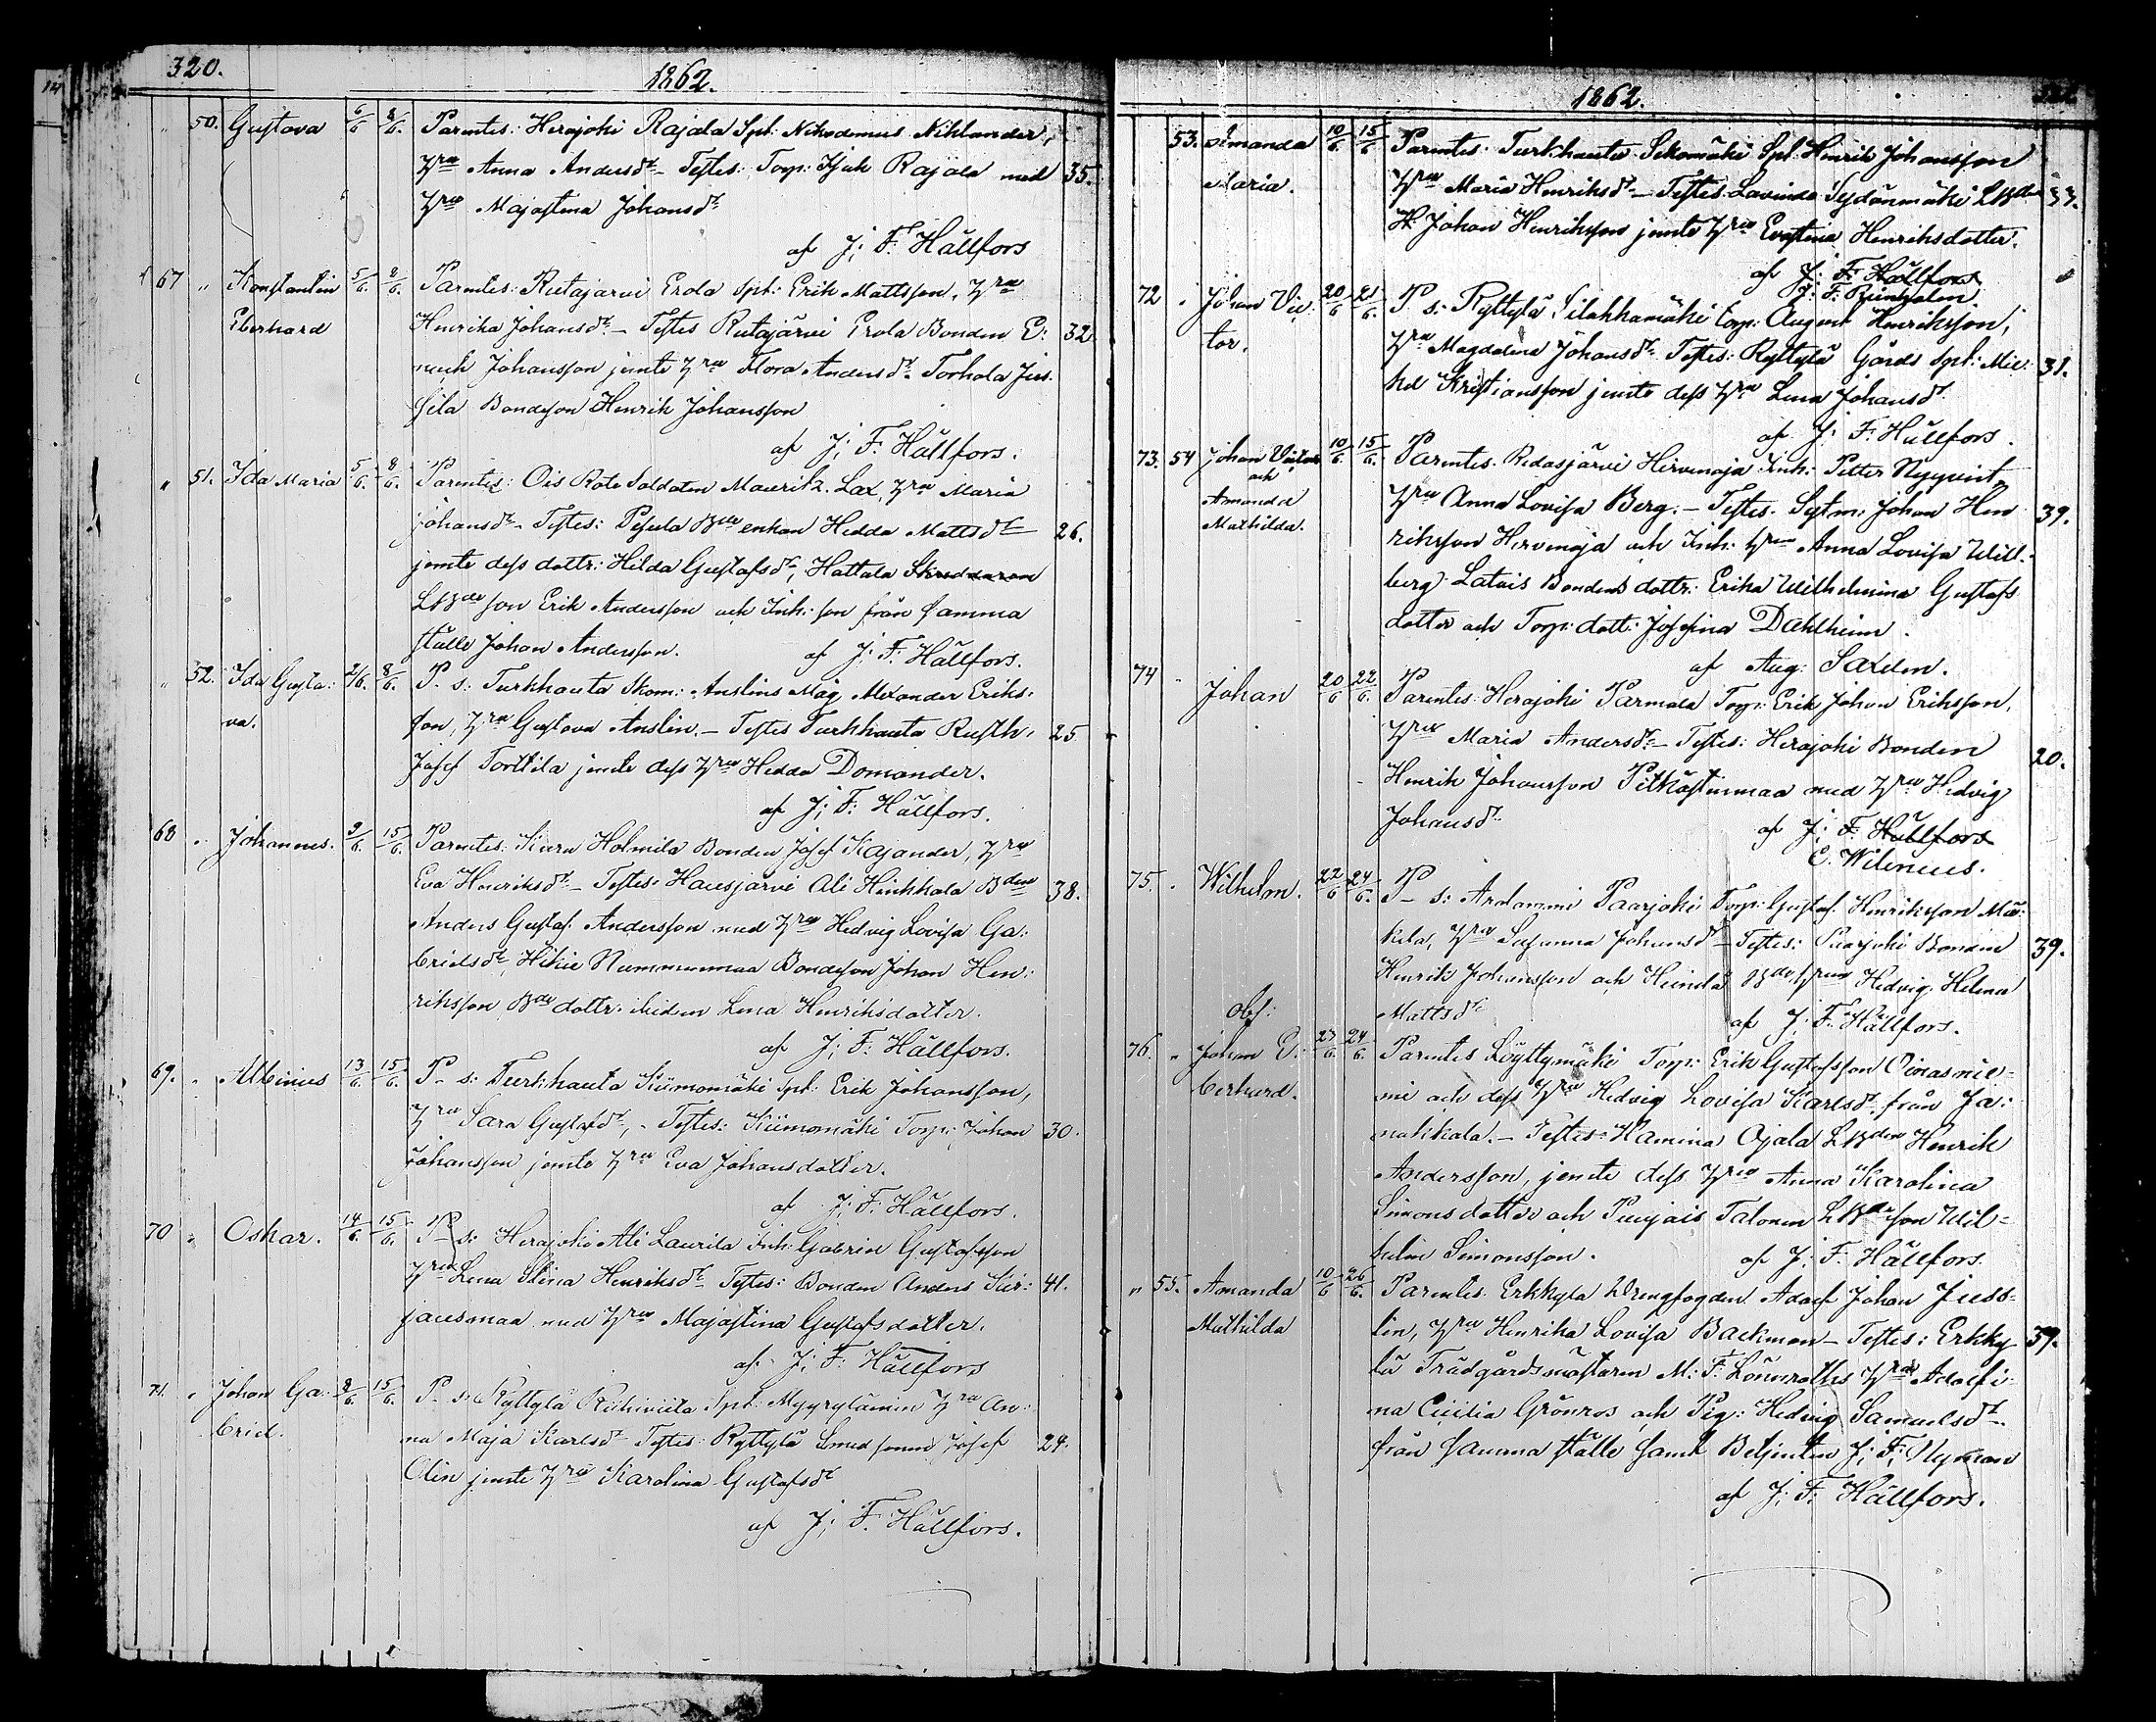 320.
1862.
" 50. Gustava 6/6 8/6. Parentes: Herajoki Rajala Spt: Nikodemus Niklander,
hru Anna Andersdr – Testes: Torp: Isak Rajala med 35.
hru Majastina Johansdr
af J: F: Hällfors
67 " Konstantin 5/6. 8/6. Parentes: Rutajärvi Erola Spt: Erik Mattsson, hru
Eberhard Henrika Johansdr – Testes Rutajärvi Erola Bonden E: 32
manuel Johansson jemte hru Flora Andersdr Torhola Jus-
sila Bondeson Henrik Johansson
af J: F: Hällfors.
" 51. Ida Maria 5/6. 8/6. Parentes: Ois Rote Soldaten Mauritz Lax, hru Maria
Johansdr – Testes: Pesula Bde enkan Hedda Mattsdr 26.
jemte dess dottr: Hilda Gustafsdr, Hattula Skreddaren
LBde son Erik Andersson och Inh: son från samma
ställe Johan Andersson. af J: F: Hällfors.
" 52. Ida Gusta: 2/6. 8/6. P_ s: Turkhauta Skom: Anslins Måg Alexander Eriks-
va. son, hru Gustava Anslin. – Testes Turkhauta Rusth. 25
Josef Torttila jemte dess hru Hedda Domander.
af J: F: Hällfors.
68 " Johannes. 9/6. 15/6. Parentes: Karu Holmila Bonden Josef Kajander, hru
Eva Henriksdr – Testes: Hausjärvi Ali Hinkkala Bden 38.
Anders Gustaf Andersson med hru Hedvig Lovisa Ga:
brielsdr, Hikiä Nummenmaa Bondeson Johan Hen:
riksson Bde dottr. ibidem Lena Henriksdotter.
af J: F: Hällfors.
69. " Albinus 13/6. 15/6. P_ s: Turkhauta Kiimomäki Spt: Erik Johansson,
hru Sara Gustafsdr, – Testes: Kiimomäki Torp: Johan 30.
Johansson jemte hru Eva Johansdotter.
af J: F: Hällfors.
70 " Oskar. 14/6. 15/6. P_ s: Herajoki Ali Laurila Inh: Gabriel Gustafsson
hru Lena Stina Henriksdr Testes: Bonden Anders Kur: 41.
jausmaa med hru Majastina Gustafsdotter.
af J: F: Hällfors
71. " Johan Ga: 8/6. 15/6. P_ s: Ryttylä Riihiviita Spt: Myyryläinen hru An:
briel. na Maja Karlsdr Testes: Ryttylä Smedsonen Josef 24.
Olin jemte hru Karolina Gustafsdr
af J: F. Hällfors.
1862.
53. Amanda 10/6. 15/6. Parentes: Turkhauta Sikomäki Spt: Henrik Johansson
Maria. hru Maria Henriksdr – Testes: Lavinda Sydänmäki LBden 33.
H: Johan Henriksson jemte hru Evastina Henriksdotter.
af J: F: Hällfors
72 " Johan Vic: 20/6. 21/6. P_ s: Ryttylä Silakkamäki Torp: August Henriksson,
tor. hru Magdalena Johansdr Testes: Ryttylä Gårds Spt: Mic: 31.
kel Kristiansson jemte dess hru Lena Johansdr
af J: F: Hällfors.
73. 54 Johan Victor 10/6. 15/6. Parentes. Ridasjärvi Hirvinoja Inh: Petter Nyqvist,
och hru Anna Lovisa Berg. – Testes. Sytm: Johan Hen 39.
Amanda riksson Hirvinoja och Inh: hru Anna Lovisa Will-
Mathilda. berg Latvis Bondens dottr: Erika Wilhelmina Gustafs
dotter och Torp: dott: Josefina Dahlheim.
af Aug: Saxelin.
74 " Johan 20/6 22/6. Parentes: Herajoki Parmala Torp: Erik Johan Eriksson,
hru Maria Andersdr – Testes: Herajoki Bonden 20.
Henrik Johansson Pitkästenmaa med hru Hedvig
Johansdr af J: F: Hällfors
C. Wilenius.
75. " Wilhelm. 22/6 24/6. P_ s: Arolammi Paarjoki Torp: Gustaf Henriksson Mik:
kela, hru Susanna Johansdr – Testes: Paarjoki Bonden 39.
Henrik Johansson och Heinilä Bde hrun Hedvig Helena
Obs: Mattsdr af J: F: Hällfors.
76. " Johan E: 23/6. 24/6. Parentes Löyttymäki Torp: Erik Gustafsson Oivasnie-
berhard. mi och dess hru Hedvig Lovisa Karlsdr, från Ja:
nakkala. – Testes: Hamina Ojala LBden Henrik
Andersson, jemte dess hru Anna Karolina
Simonsdotter och Pursais Talonen LBde son Wil=
helm Simonsson. af J: F: Hällfors.
" 55. Amanda 10/6 26/6. Parentes. Erkkylä Drengfogden Adolf Johan Juse-
Mathilda lin, hru Henrika Lovisa Backman – Testes: Erkky 39.
lä Trädgårdsmästaren M: F: Lönnroths hru Adolfi-
na Cecilia Grönros och Pig: Hedvig Samuelsdr
från samma ställe samt Betjenten J: F: Nyman
af J: F: Hällfors.